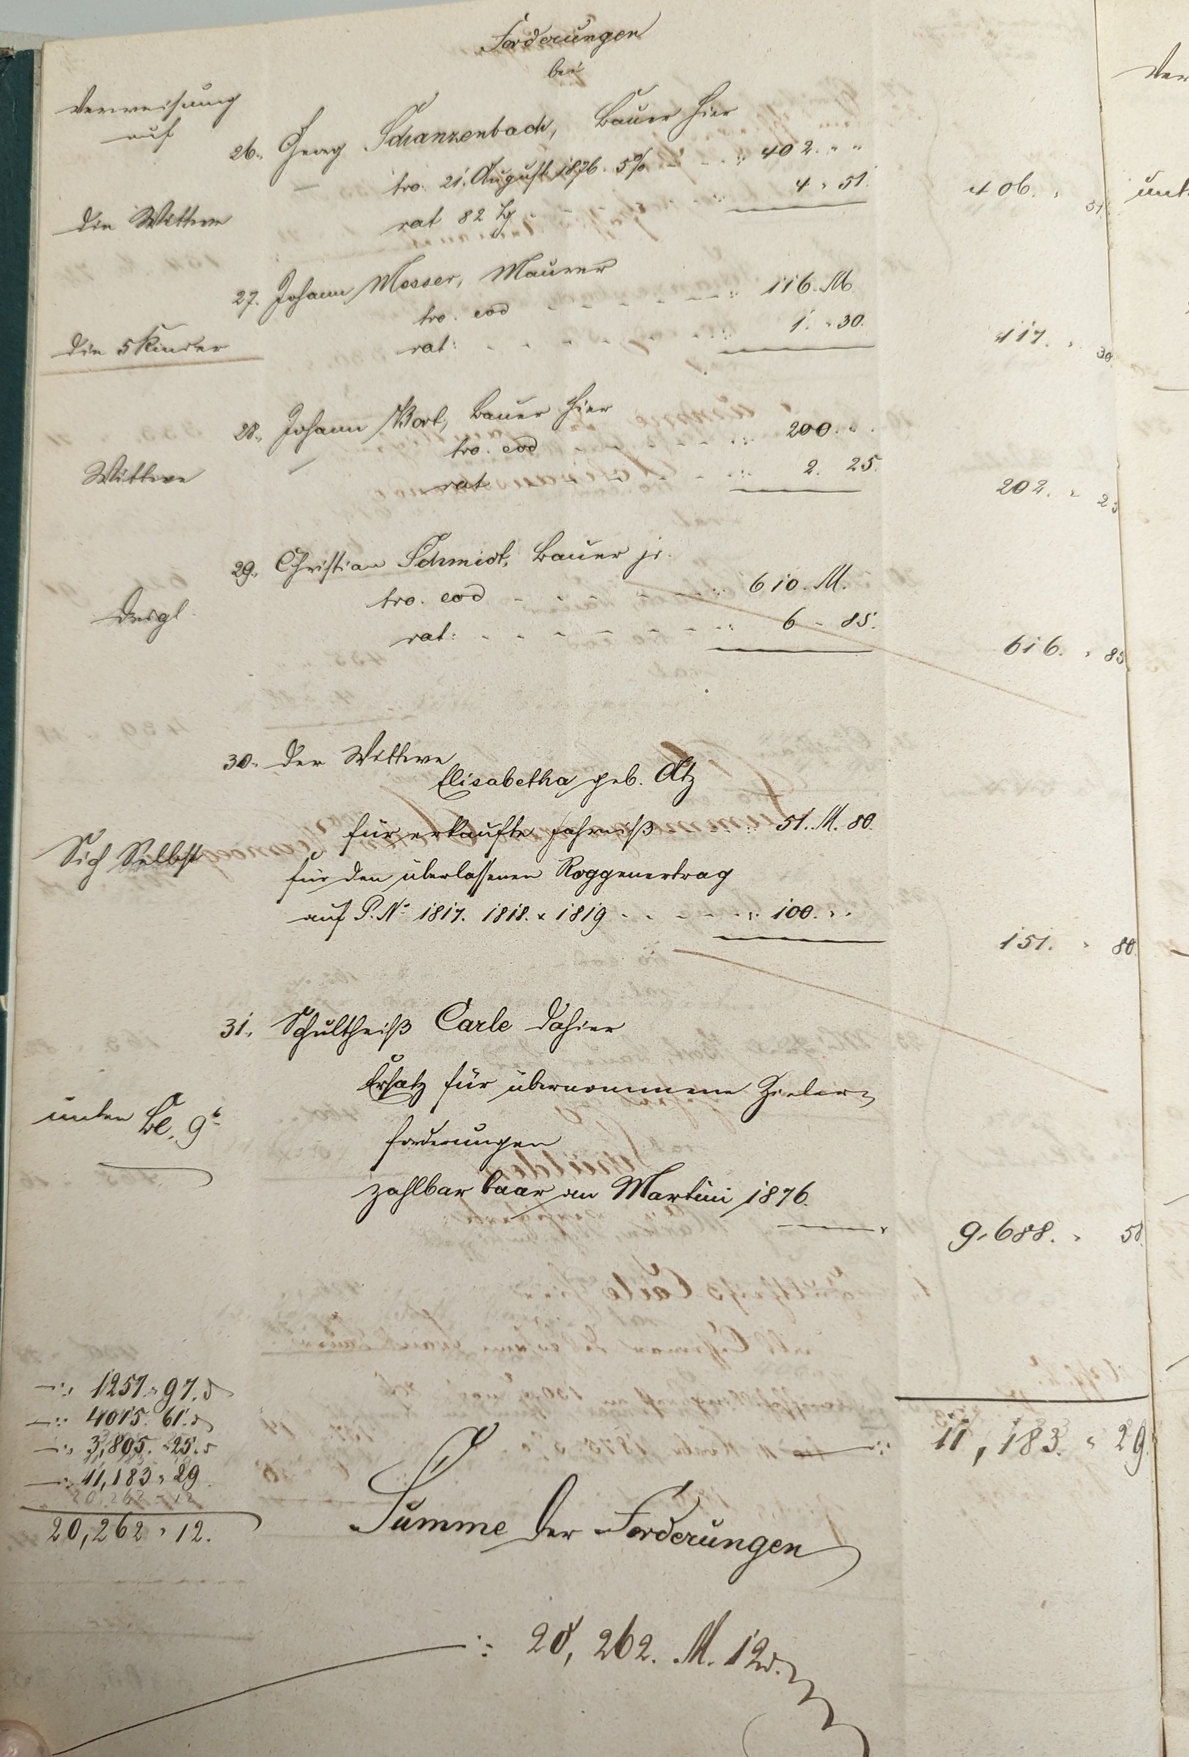 Forderungen
bei
Verweisung
auf
26. Georg Schanzenbach, Bauer hier
tro. 21. August 1876. 5% 402. " "
die Wittwe
rat 82 Tg 4 " 51.
406. " 51
27. Johann Mosser, Maurer
tro. eod 116. M
die 5 Kinder
rat: 1. " 30.
117. " 30
28. Johann Bort, Bauer hier
tro. eod 200. " "
Wittwe
rat 2. 25.
202. " 25
29. Christian Schmidt, Bauer jr.
tro. eod 610. M.
desgl.
rat: 6 " 85.
616. " 85
30. Der Wittwe
Elisabetha geb. Ötz
für erkaufte Fahrniß 51. M. 80.
Sich Selbst
für den überlassenen Roggenertrag
auf P. No 1817. 1818. & 1819 100. " "
151. " 80.
31. Schultheiß Carle dahier
Ersatz für übernommene Zieler-
unten Bl. 9b
forderungen
zahlbar baar an Martini 1876.
9,688. " 58.
1257 " 97.
4015. 61.
3,805. " 25.
11,183 " 29
20,262 - 12
20,262 " 12.
11,183. " 29.
Summe der Forderungen
20,262. M. 12